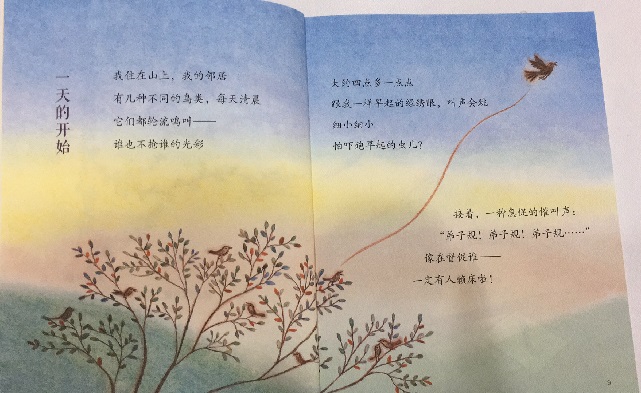 一天的开始
我住在山上，我的邻居
有几种不同的鸟类，每天清晨
它们都轮流鸣叫——
谁也不抢谁的光彩
大约四点多一点点
跟我一样早起的绿绣眼，叫声会是
细小细小
怕吓跑早起的虫儿？
接着，一种急促的催叫声：
“弟子规！弟子规！弟子规……”
像在督促谁——
一定有人赖床啦！